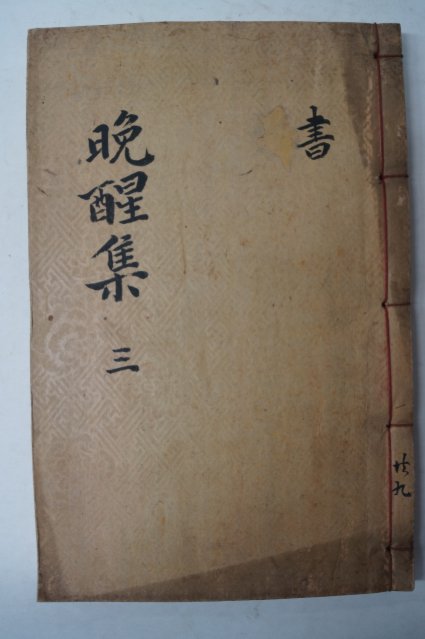 晩醒集 三
書
共九